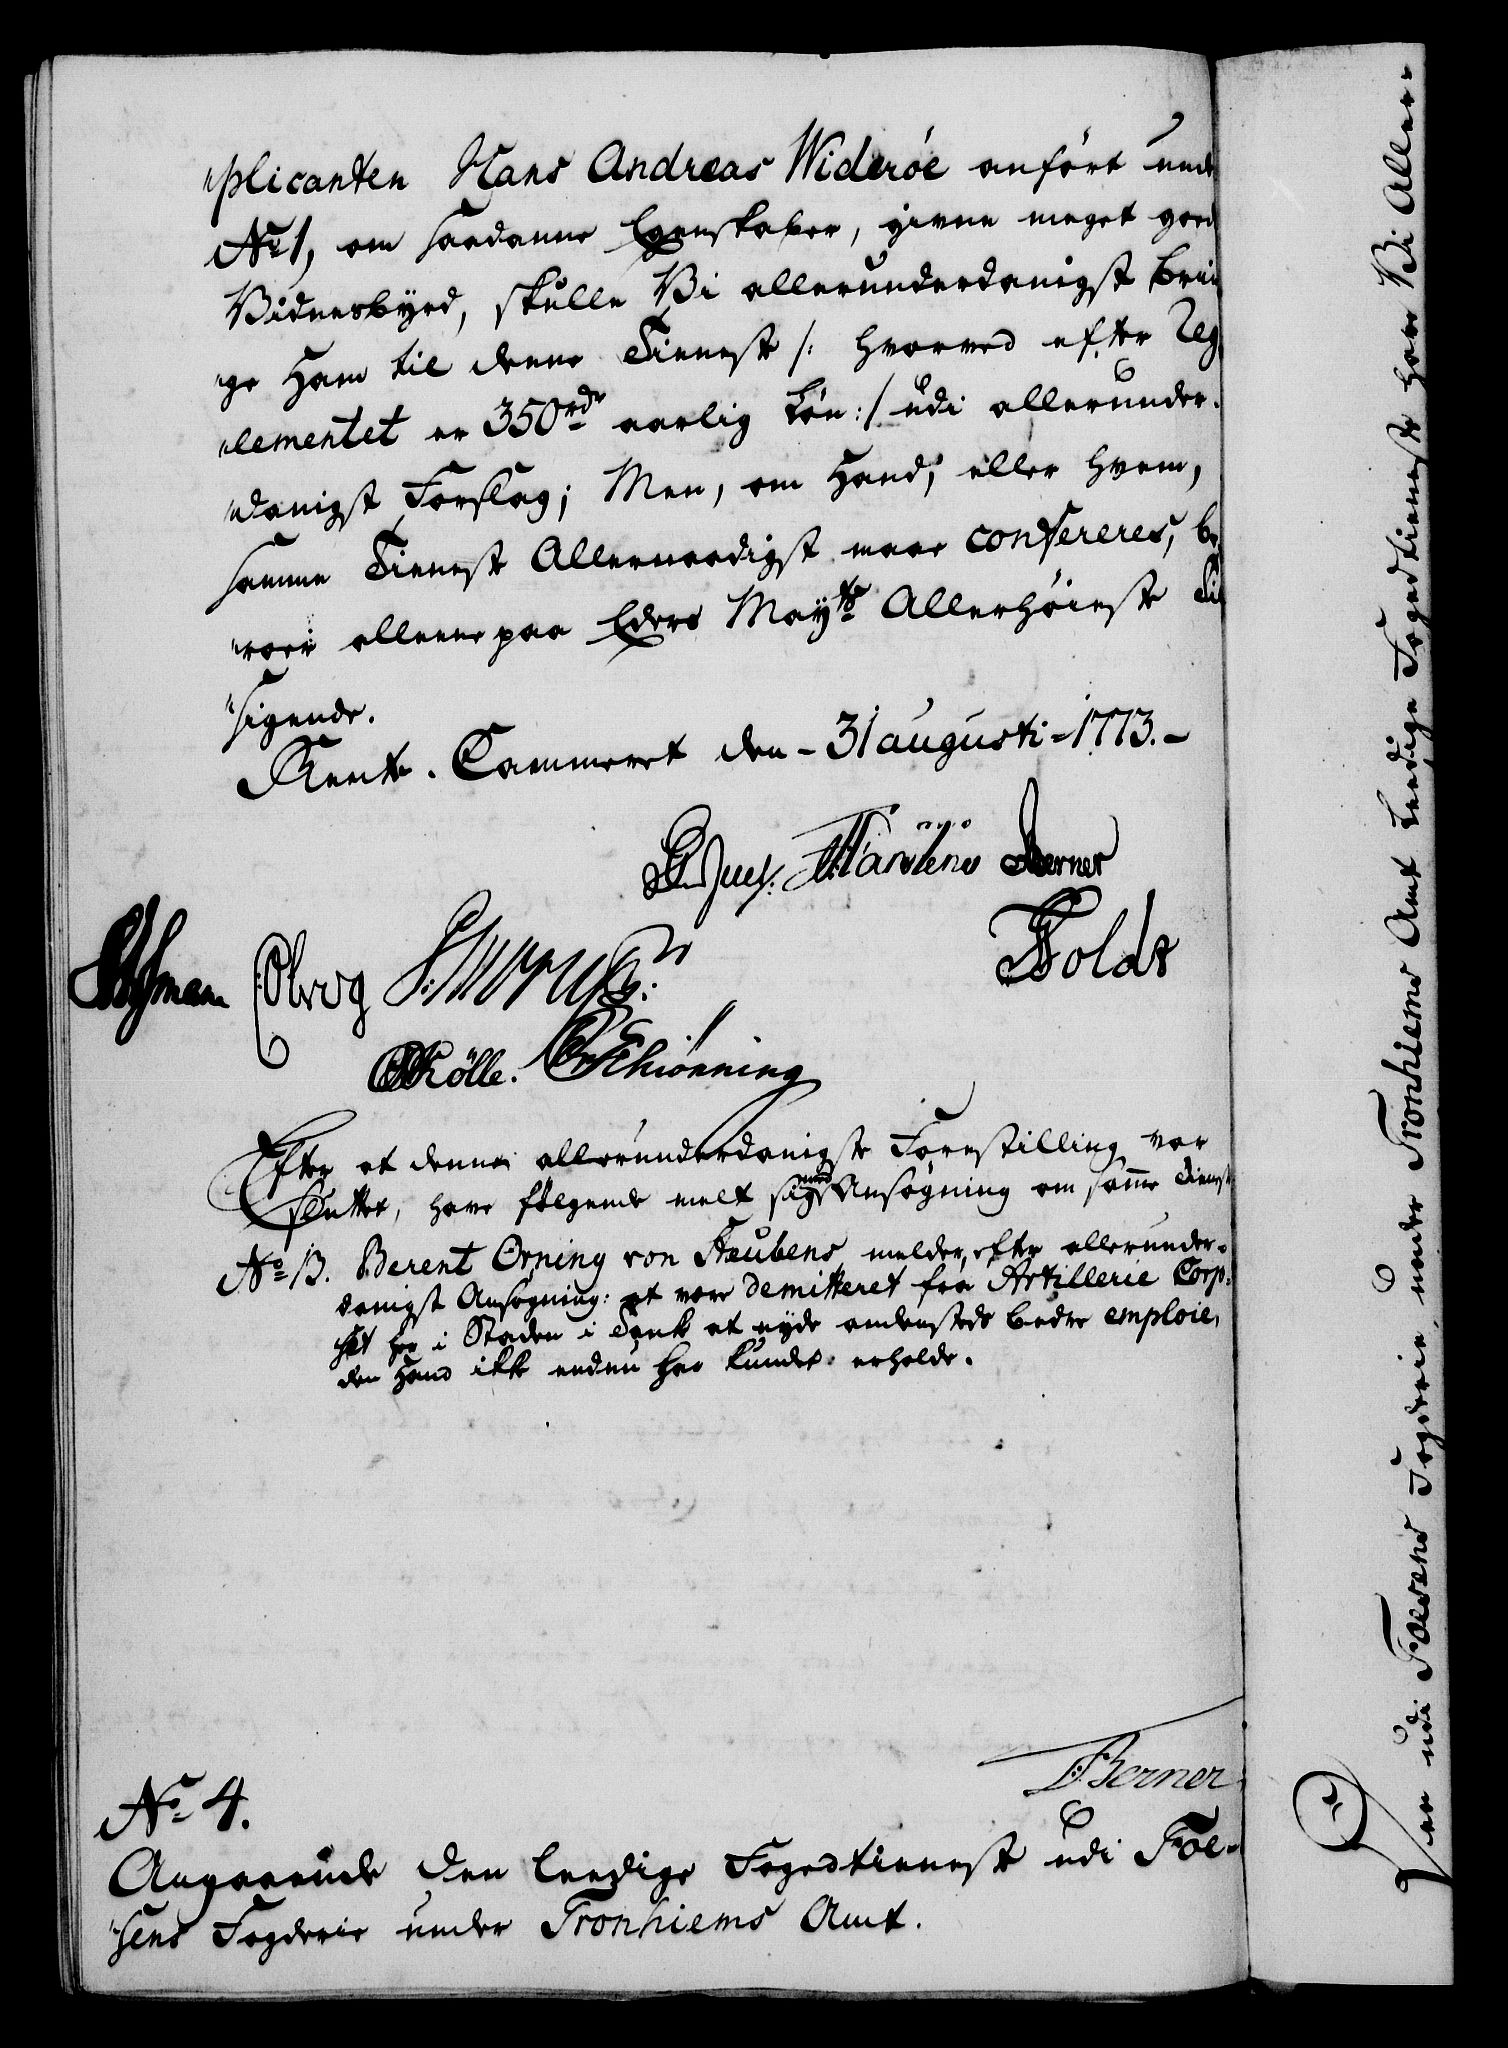 "plicanten Hans Andreas Wideröe anført unde
No 1, om saadanne Egenskaber, givne meget goed
Vidnesbyrd, skulle Vi allerunderdanigst brin
"ge Ham til denne Tieneste /: hvorved efter Reg
"lementet er 350 rdr aarlig Løn :/ udi allerunder-
"danigst Forslag; Men, om Hand, eller hvem,
samme Tieneste Allernaadigst maae confereres, be
"roer alleene paa Eders Mayts Allerhøieste Til
"sigende.
Rente-Cammeret den - 31 augusti - 1773. -
Juel. Martens Berner
Colbrog Told
Rölle. Schiønning
Efter at denne allerunderdanigste Forestilling var
sluttet, have følgende meldt sig med Ansøgning om samme Tieneste
No 13. Berent Örning von Steubens melder, efter allerunder-
danigst Ansøgning: at være demitteret fra Artillerie Corp-
set her i Staden i Tanke at nyde andensteds bedre emploie,
den Hand ikke endnu har kundet erholde.
T: Berner
No 4.
Angaaende den leedige Fogedtieneste udi Foe-
"sens Fogderie under Tronhiems Amt.
Den udi Foesens Fogderie under Tronhiems Amt leedige Fogedtieneste have Vi Aller-